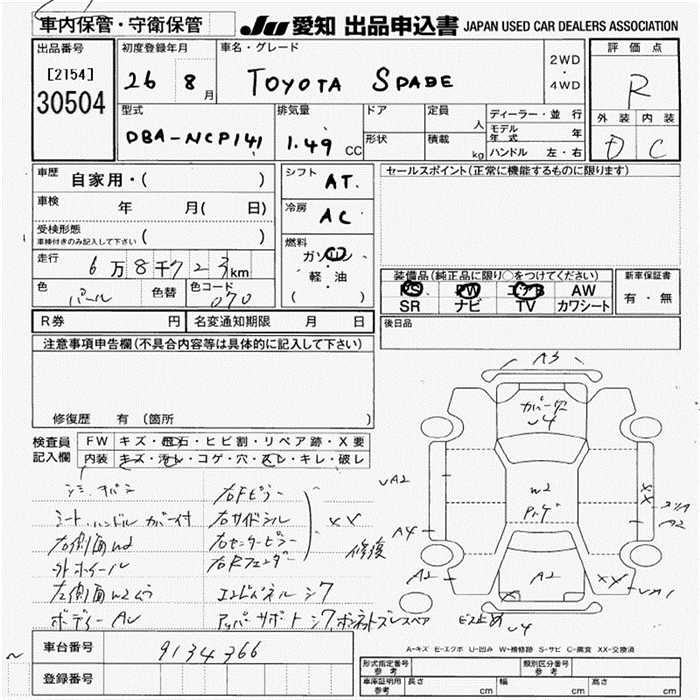 車内保管・守衛保管
JU 愛知 出品申込書 JAPAN USED CAR DEALERS ASSOCIATION
出品番号
[2154]
30504
初度登録年月
26 8月
車名・グレード
TOYOTA SPADE
2WD
・
4WD
評価点
R
外装 内装
D C
型式
DBA-NCP141
排気量
1.49 CC
ドア
形状
定員 人
積載 kg
ディーラー・並行
モデル年式 年
ハンドル 左・右
車歴 自家用・( )
車検 年 月( 日)
受検形態
車検付きのみ記入して下さい ( )
走行 6万8千723km
色 パール 色替 色コード 070
シフト AT.
冷房 AC
燃料
ガソリン
軽・油
( )
セールスポイント(正常に機能するものに限ります)
装備品(純正品に限り○をつけてください)
PS PW エアB AW
SR ナビ TV カワシート
新車保証書
有・無
R券 円 名変通知期限 月 日
後日品
注意事項申告欄(不具合内容等は具体的に記入して下さい)
修復歴 有 (箇所 )
検査員記入欄
FW キズ・飛石・ヒビ割・リペア跡・X要
内装 キズ・汚レ・コゲ・穴・スレ・キレ・破レ
シート、ハンドル カバー付
右側面wd
外ホイール
ボディー AU
右Fピラー
右サイドシル
右センターピラー
右Rフェンダー
XX
修復
エンドパネル シワ
アッパーサポート シワ, ボンネットズレ スペア
ビス止め
A3
カバー欠
U4
UA2
W2
A4
XX
A2
A2
A2
XX
UA1
U4
A-キズ E-エクボ U-凹み W-補修跡 S-サビ C-腐食 XX-交換済
車台番号 9134366
登録番号
形式指定番号
参考
類別区分番号
参考
車庫証明用
参考
長さ cm 幅 cm 高さ cm